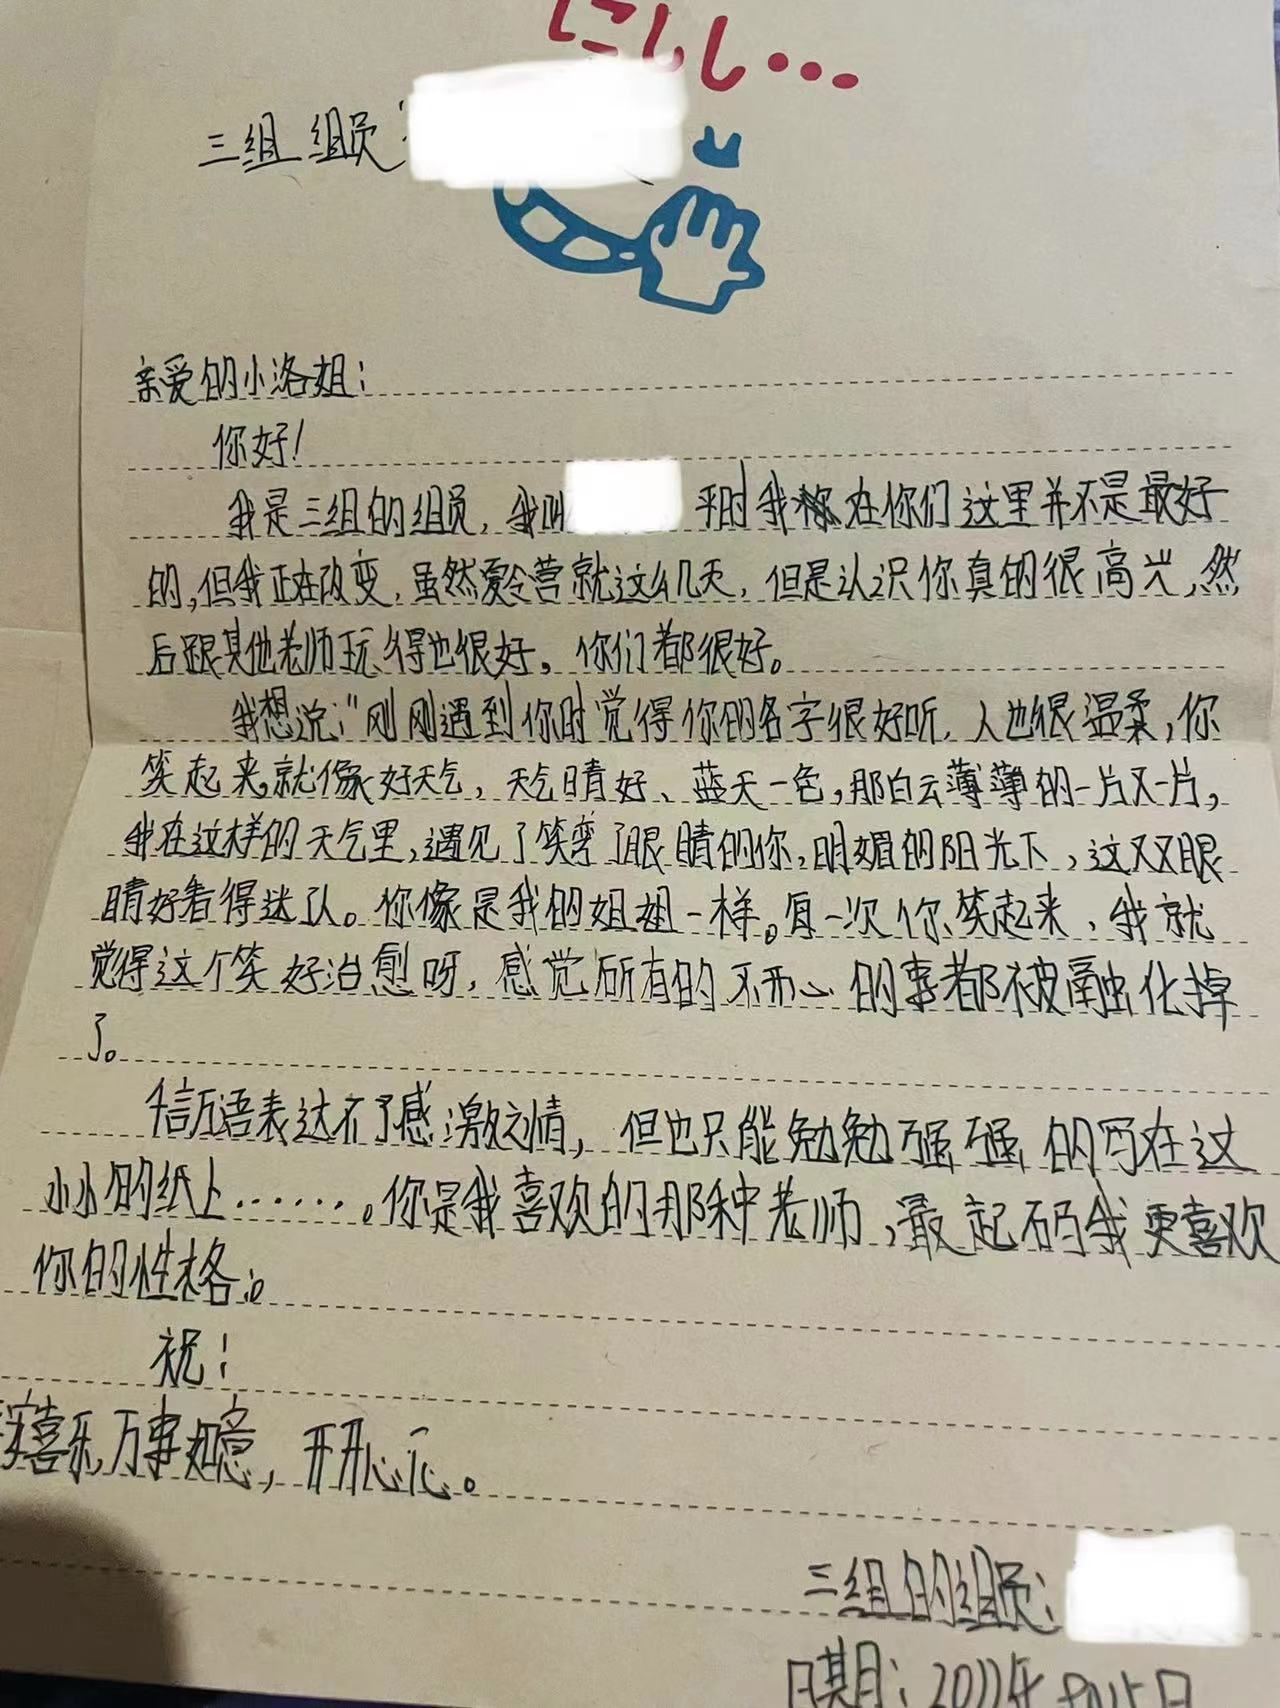 にしし…
三组 组员:
亲爱的小洛姐:
你好!
我是三组的组员,我叫 平时我在你们这里并不是最好
的,但我正在改变,虽然夏令营就这么几天,但是认识你真的很高兴,然
后跟其他老师玩得也很好。你们都很好。
我想说:"刚刚遇到你时觉得你的名字很好听,人也很温柔,你
笑起来就像好天气,天气晴好、蓝天一色,那白云薄薄的一片又一片,
我在这样的天气里,遇见了笑弯了眼睛的你,明媚的阳光下,这双眼
睛好看得迷人。你像是我的姐姐一样。每一次你笑起来,我就
觉得这个笑好治愈呀,感觉所有的不开心的事都被融化掉
了。
千言万语表达不了感激之情,但也只能勉勉强强的写在这
小小的纸上……。你是我喜欢的那种老师,最起码我更喜欢
你的性格。
祝!
喜乐,万事如意,开开心心。
三组的组员:
日期: